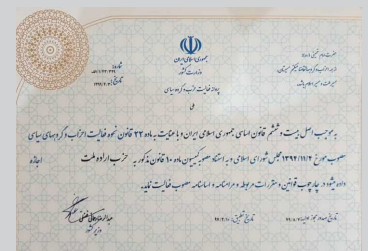 جمهوری اسلامی ایران
وزارت کشور
پروانه فعالیت حزب و گروه سیاسی
ملی
به موجب اصل بیست و ششم قانون اساسی جمهوری اسلامی ایران و با عنایت به ماده ۲۲ قانون نحوه فعالیت احزاب و گروههای سیاسی
مصوب مورخ ۱۳۹۴/۱۱/۴ مجلس شورای اسلامی و به استناد مصوبه کمیسیون ماده ۱۰ قانون مذکور به حزب اراده ملت اجازه
داده میشود در چارچوب قوانین و مقررات مربوطه و مرامنامه و اساسنامه مصوب فعالیت نماید.
عبدالرضا رحمانی فضلی
وزیر کشور